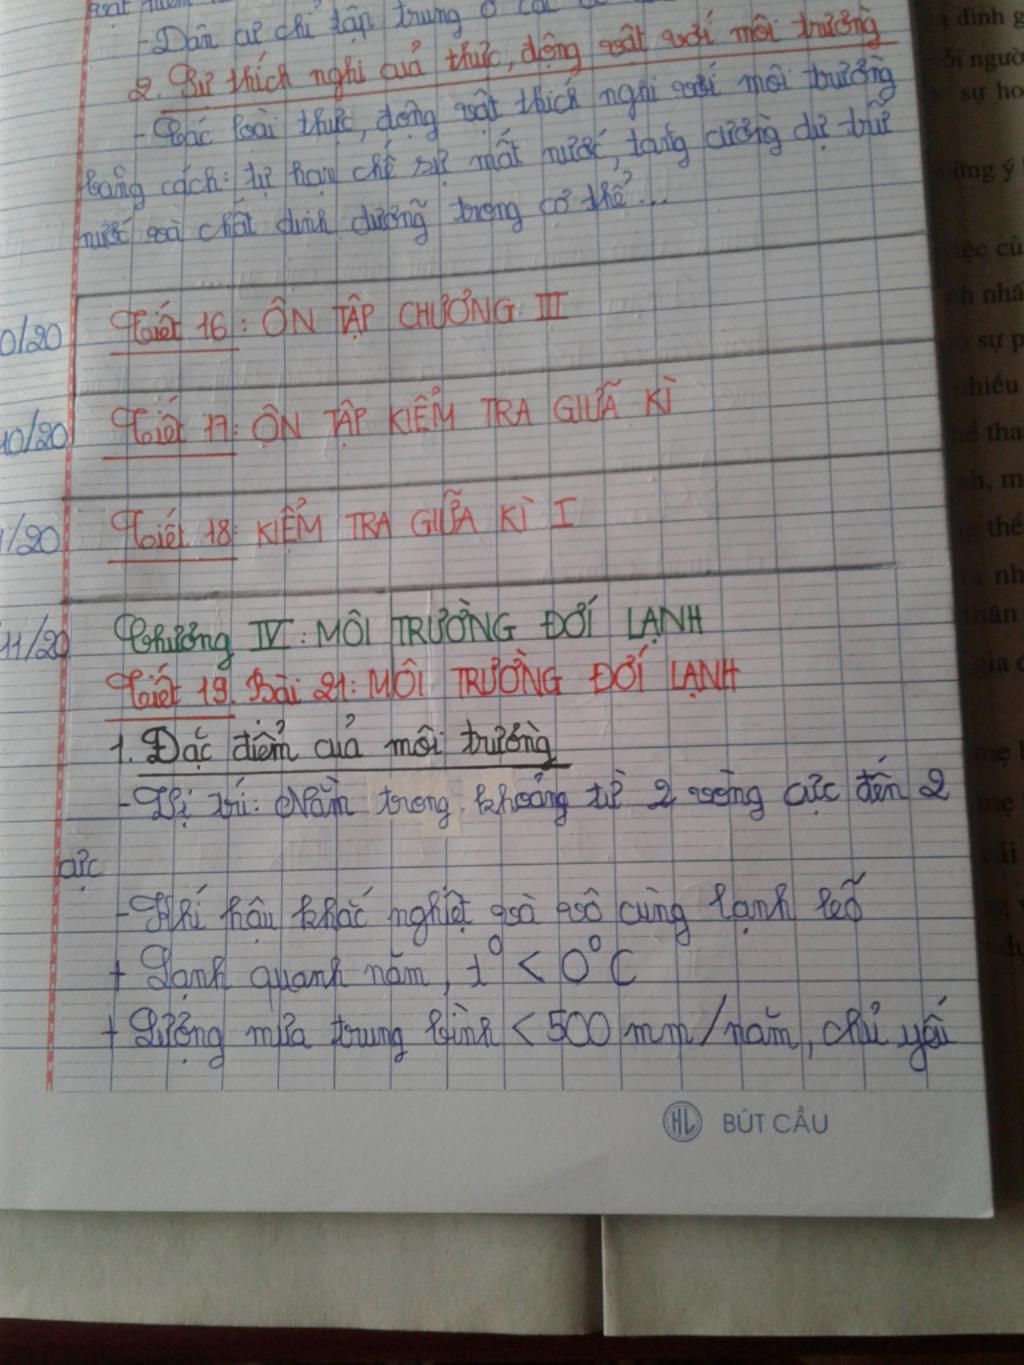 - Dân cư chỉ tập trung ở các
2. Sự thích nghi của thực, động vật với môi trường
- Các loài thực, động vật thích nghi với môi trường
bằng cách: tự hạn chế sự mất nước, tăng cường dự trữ
nước và chất dinh dưỡng trong cơ thể...
0/20 Tiết 16: ÔN TẬP CHƯƠNG III
10/20 Tiết 17: ÔN TẬP KIỂM TRA GIỮA KÌ
/20 Tiết 18: KIỂM TRA GIỮA KÌ I
11/20 Chương IV: MÔI TRƯỜNG ĐỚI LẠNH
Tiết 19. Bài 21: MÔI TRƯỜNG ĐỚI LẠNH
1. Đặc điểm của môi trường
- Vị trí: Nằm trong khoảng từ 2 vòng cực đến 2
cực
- Khí hậu khắc nghiệt và vô cùng lạnh lẽo
+ Lạnh quanh năm, t° < 0°C
+ Lượng mưa trung bình < 500 mm/năm, chủ yếu
HL BÚT CẦU
đình g
ỗi ngườ
sự ho
ững ý
ệc củ
nh nhâ
sự p
nhiều
thể
nh
thân
gia